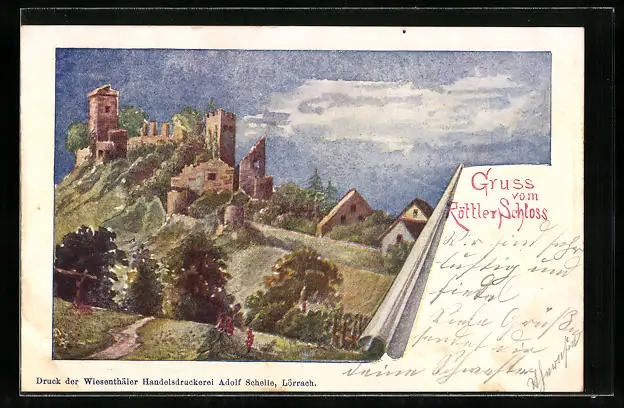 Gruss
vom
Röttler Schloss
Wir sind sehr
lustig und
fidel
Viele Grüße
sendet dir
deine Schwester
Druck der Wiesenthäler Handelsdruckerei Adolf Schelle, Lörrach.